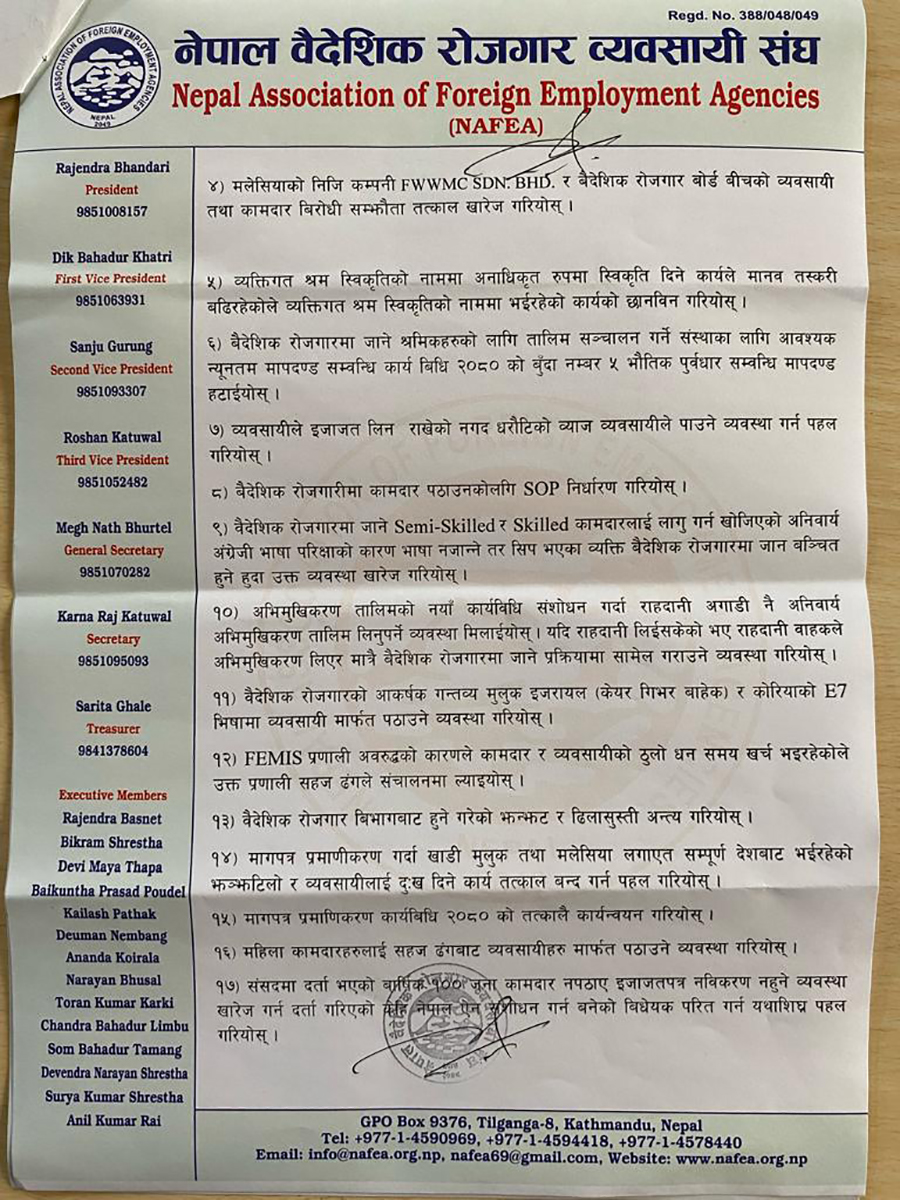 Regd. No. 388/048/049
नेपाल वैदेशिक रोजगार व्यवसायी संघ
Nepal Association of Foreign Employment Agencies
(NAFEA)
NEPAL ASSOCIATION OF FOREIGN EMPLOYMENT AGENCIES
NEPAL
2049
Rajendra Bhandari
President
9851008157
Dik Bahadur Khatri
First Vice President
9851063931
Sanju Gurung
Second Vice President
9851093307
Roshan Katuwal
Third Vice President
9851052482
Megh Nath Bhurtel
General Secretary
9851070282
Karna Raj Katuwal
Secretary
9851095093
Sarita Ghale
Treasurer
9841378604
Executive Members
Rajendra Basnet
Bikram Shrestha
Devi Maya Thapa
Baikuntha Prasad Poudel
Kailash Pathak
Deuman Nembang
Ananda Koirala
Narayan Bhusal
Toran Kumar Karki
Chandra Bahadur Limbu
Som Bahadur Tamang
Devendra Narayan Shrestha
Surya Kumar Shrestha
Anil Kumar Rai
४) मलेसियाको निजि कम्पनी FWWMC SDN. BHD. र बैदेशिक रोजगार बोर्ड बीचको व्यवसायी
तथा कामदार बिरोधी सम्झौता तत्काल खारेज गरियोस् ।
५) व्यक्तिगत श्रम स्विकृतिको नाममा अनाधिकृत रुपमा स्विकृति दिने कार्यले मानव तस्करी
बढिरहेकोले व्यक्तिगत श्रम स्विकृतिको नाममा भईरहेको कार्यको छानविन गरियोस् ।
६) बैदेशिक रोजगारमा जाने श्रमिकहरुको लागि तालिम सञ्चालन गर्ने संस्थाका लागि आवश्यक
न्यूनतम मापदण्ड सम्वन्धि कार्य बिधि २०८० को बुँदा नम्बर ५ भौतिक पुर्वधार सम्वन्धि मापदण्ड
हटाईयोस् ।
७) व्यवसायीले इजाजत लिन राखेको नगद धरौटिको ब्याज व्यवसायीले पाउने व्यवस्था गर्न पहल
गरियोस् ।
८) बैदेशिक रोजगारीमा कामदार पठाउनकोलगि SOP निर्धारण गरियोस् ।
९) वैदेशिक रोजगारमा जाने Semi-Skilled र Skilled कामदारलाई लागु गर्न खोजिएको अनिवार्य
अंग्रेजी भाषा परिक्षाको कारण भाषा नजान्ने तर सिप भएका व्यक्ति बैदेशिक रोजगारमा जान बञ्चित
हुने हुदा उक्त व्यवस्था खारेज गरियोस् ।
१०) अभिमुखिकरण तालिमको नयाँ कार्यविधि संशोधन गर्दा राहदानी अगाडी नै अनिवार्य
अभिमुखिकरण तालिम लिनुपर्ने व्यवस्था मिलाईयोस् । यदि राहदानी लिईसकेको भए राहदानी वाहकले
अभिमुखिकरण लिएर मात्रै बैदेशिक रोजगारमा जाने प्रक्रियामा सामेल गराउने व्यवस्था गरियोस् ।
११) वैदेशिक रोजगारको आकर्षक गन्तव्य मुलुक इजरायल (केयर गिभर बाहेक) र कोरियाको E7
भिषामा व्यवसायी मार्फत पठाउने व्यवस्था गरियोस् ।
१२) FEMIS प्रणाली अवरुद्धको कारणले कामदार र व्यवसायीको ठुलो धन समय खर्च भइरहेकोले
उक्त प्रणाली सहज ढंगले संचालनमा ल्याइयोस् ।
१३) वैदेशिक रोजगार बिभागबाट हुने गरेको झन्झट र ढिलासुस्ती अन्त्य गरियोस् ।
१४) मागपत्र प्रमाणीकरण गर्दा खाडी मुलुक तथा मलेसिया लगाएत सम्पूर्ण देशबाट भईरहेको
झञ्झटिलो र व्यवसायीलाई दुःख दिने कार्य तत्काल बन्द गर्न पहल गरियोस् ।
१५) मागपत्र प्रमाणिकरण कार्यबिधि २०८० को तत्कालै कार्यन्वयन गरियोस् ।
१६) महिला कामदारहरुलाई सहज ढंगबाट व्यवसायीहरु मार्फत पठाउने व्यवस्था गरियोस् ।
१७) संसदमा दर्ता भएको बार्षिक १०० जना कामदार नपठाए इजाजतपत्र नविकरण नहुने व्यवस्था
खारेज गर्न दर्ता गरिएको केहि नेपाल ऐन संशोधन गर्न बनेको विधेयक परित गर्न यथाशिघ्र पहल
गरियोस् ।
GPO Box 9376, Tilganga-8, Kathmandu, Nepal
Tel: +977-1-4590969, +977-1-4594418, +977-1-4578440
Email: info@nafea.org.np, nafea69@gmail.com, Website: www.nafea.org.np